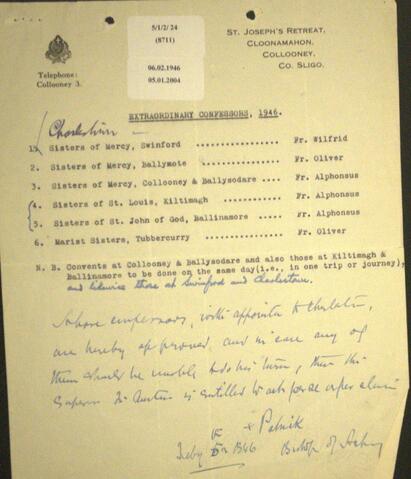 5/1/2/24
(8711)
06.02.1946
05.01.2004
Telephone:
Collooney 3.
ST. JOSEPH'S RETREAT,
CLOONAMAHON,
COLLOONEY,
CO. SLIGO.
EXTRAORDINARY CONFESSORS, 1946.
Charlestown —
1. Sisters of Mercy, Swinford ................ Fr. Wilfrid
2. Sisters of Mercy, Ballymote ............... Fr. Oliver
3. Sisters of Mercy, Collooney & Ballysodare .... Fr. Alphonsus
4. Sisters of St. Louis, Kiltimagh ............ Fr. Alphonsus
5. Sisters of St. John of God, Ballinamore ..... Fr. Alphonsus
6. Marist Sisters, Tubbercurry ............... Fr. Oliver
N. B. Convents at Collooney & Ballysodare and also those at Kiltimagh &
Ballinamore to be done on the same day(i.e., in one trip or journey),
and likewise those at Swinford and Charlestown.
Above confessors, with
are hereby approved, and in case any of
them should be unable to do his turn, then the
Superior is entitled to
+ Patrick
1946 Bishop of